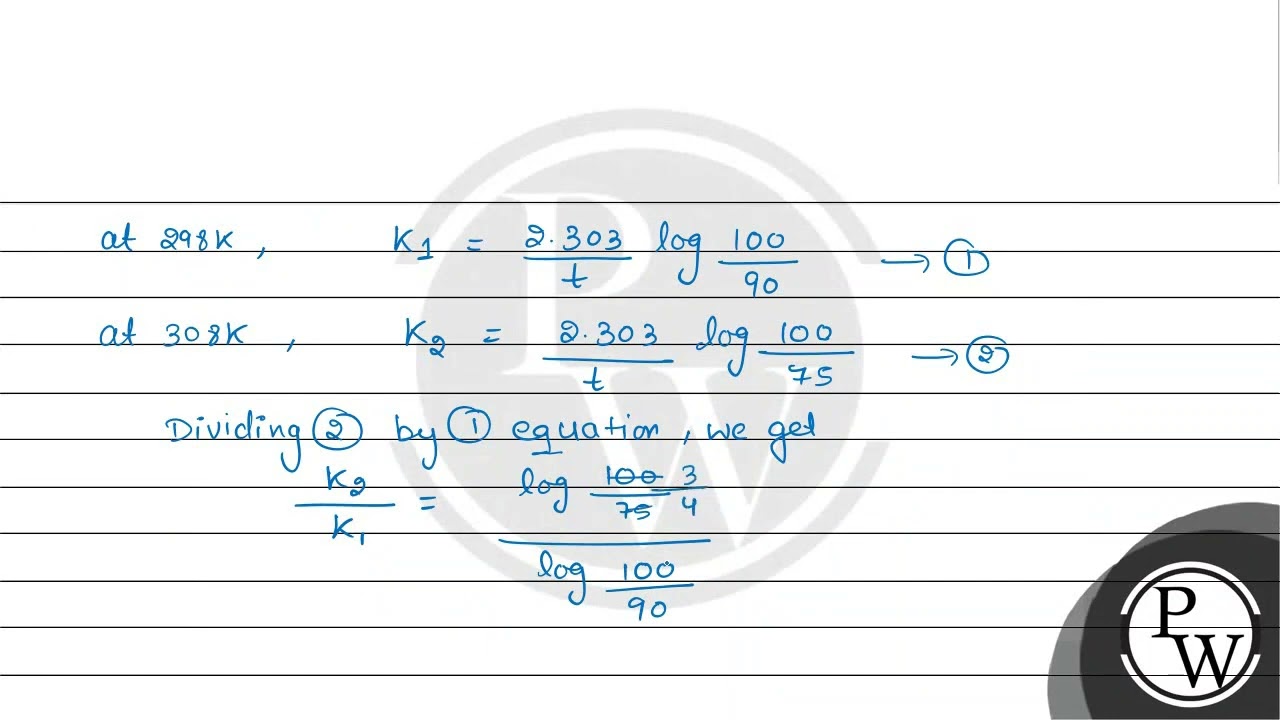 at 298K, K₁ = 2.303/t log 100/90 → ①
at 308K, K₂ = 2.303/t log 100/75 → ②
Dividing ② by ① equation, we get
K₂/K₁ = log 1̶0̶0̶/7̶5̶ 3/4 / log 100/90
PW
PW